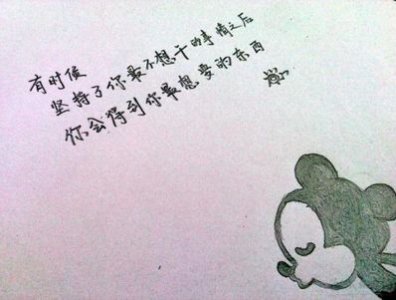 有时候
坚持了你最不想干的事情之后
你会得到你最想要的东西